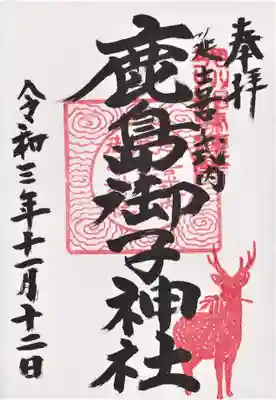 奉拝
延喜式内
鹿島御子神社
令和三年十一月十二日